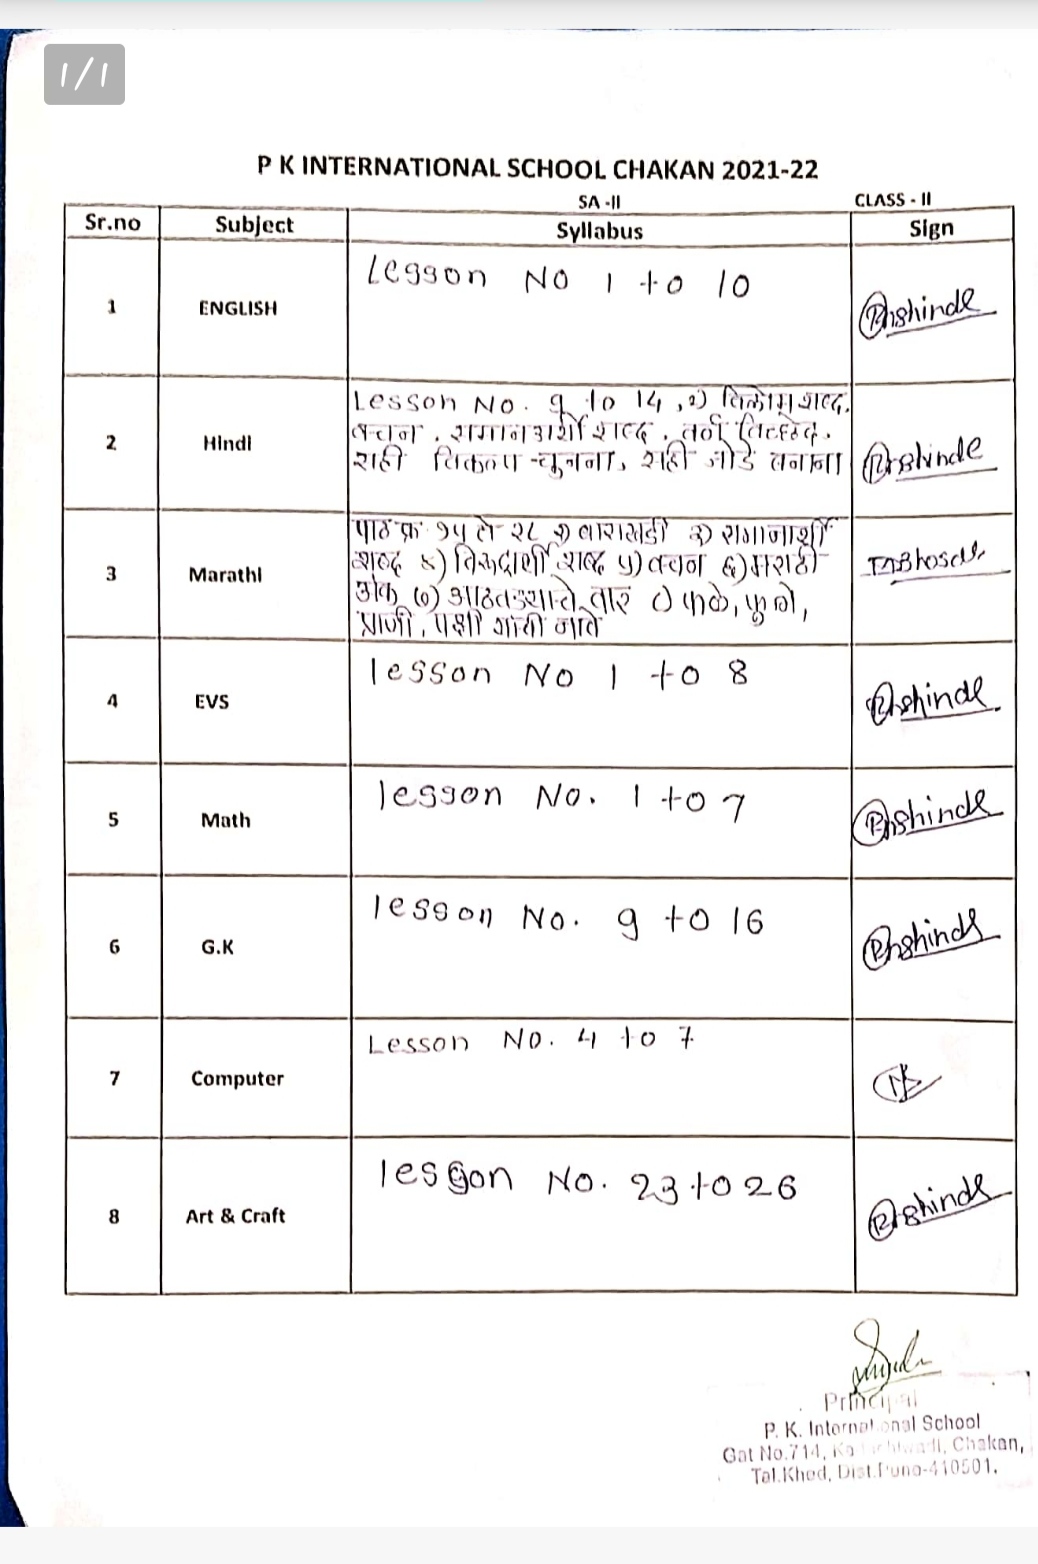 1/1
P K INTERNATIONAL SCHOOL CHAKAN 2021-22
SA -II CLASS - II
Sr.no Subject Syllabus Sign
1 ENGLISH Lesson No 1 to 10
2 Hindi Lesson No. 9 to 14, २) विलोम शब्द,
वचन, समान अर्थी शब्द, वर्ण विच्छेद,
सही विकल्प चुनना, सही जोडे बनाना
3 Marathi पाठ क्र १५ ते २८ २) बाराखडी ३) समानार्थी
शब्द ४) विरुद्धार्थी शब्द ५) वचन ६) मराठी
अंक ७) आठवड्याचे वार ८) फळे, फुले,
प्राणी, पक्षी यांची नावे
4 EVS lesson No 1 to 8
5 Math lesson No. 1 to 7
6 G.K lesson No. 9 to 16
7 Computer Lesson No. 4 to 7
8 Art & Craft lesson No. 23 to 26
Principal
P. K. International School
Gat No.714, Chakan,
Tal.Khed, Dist.Pune-410501.